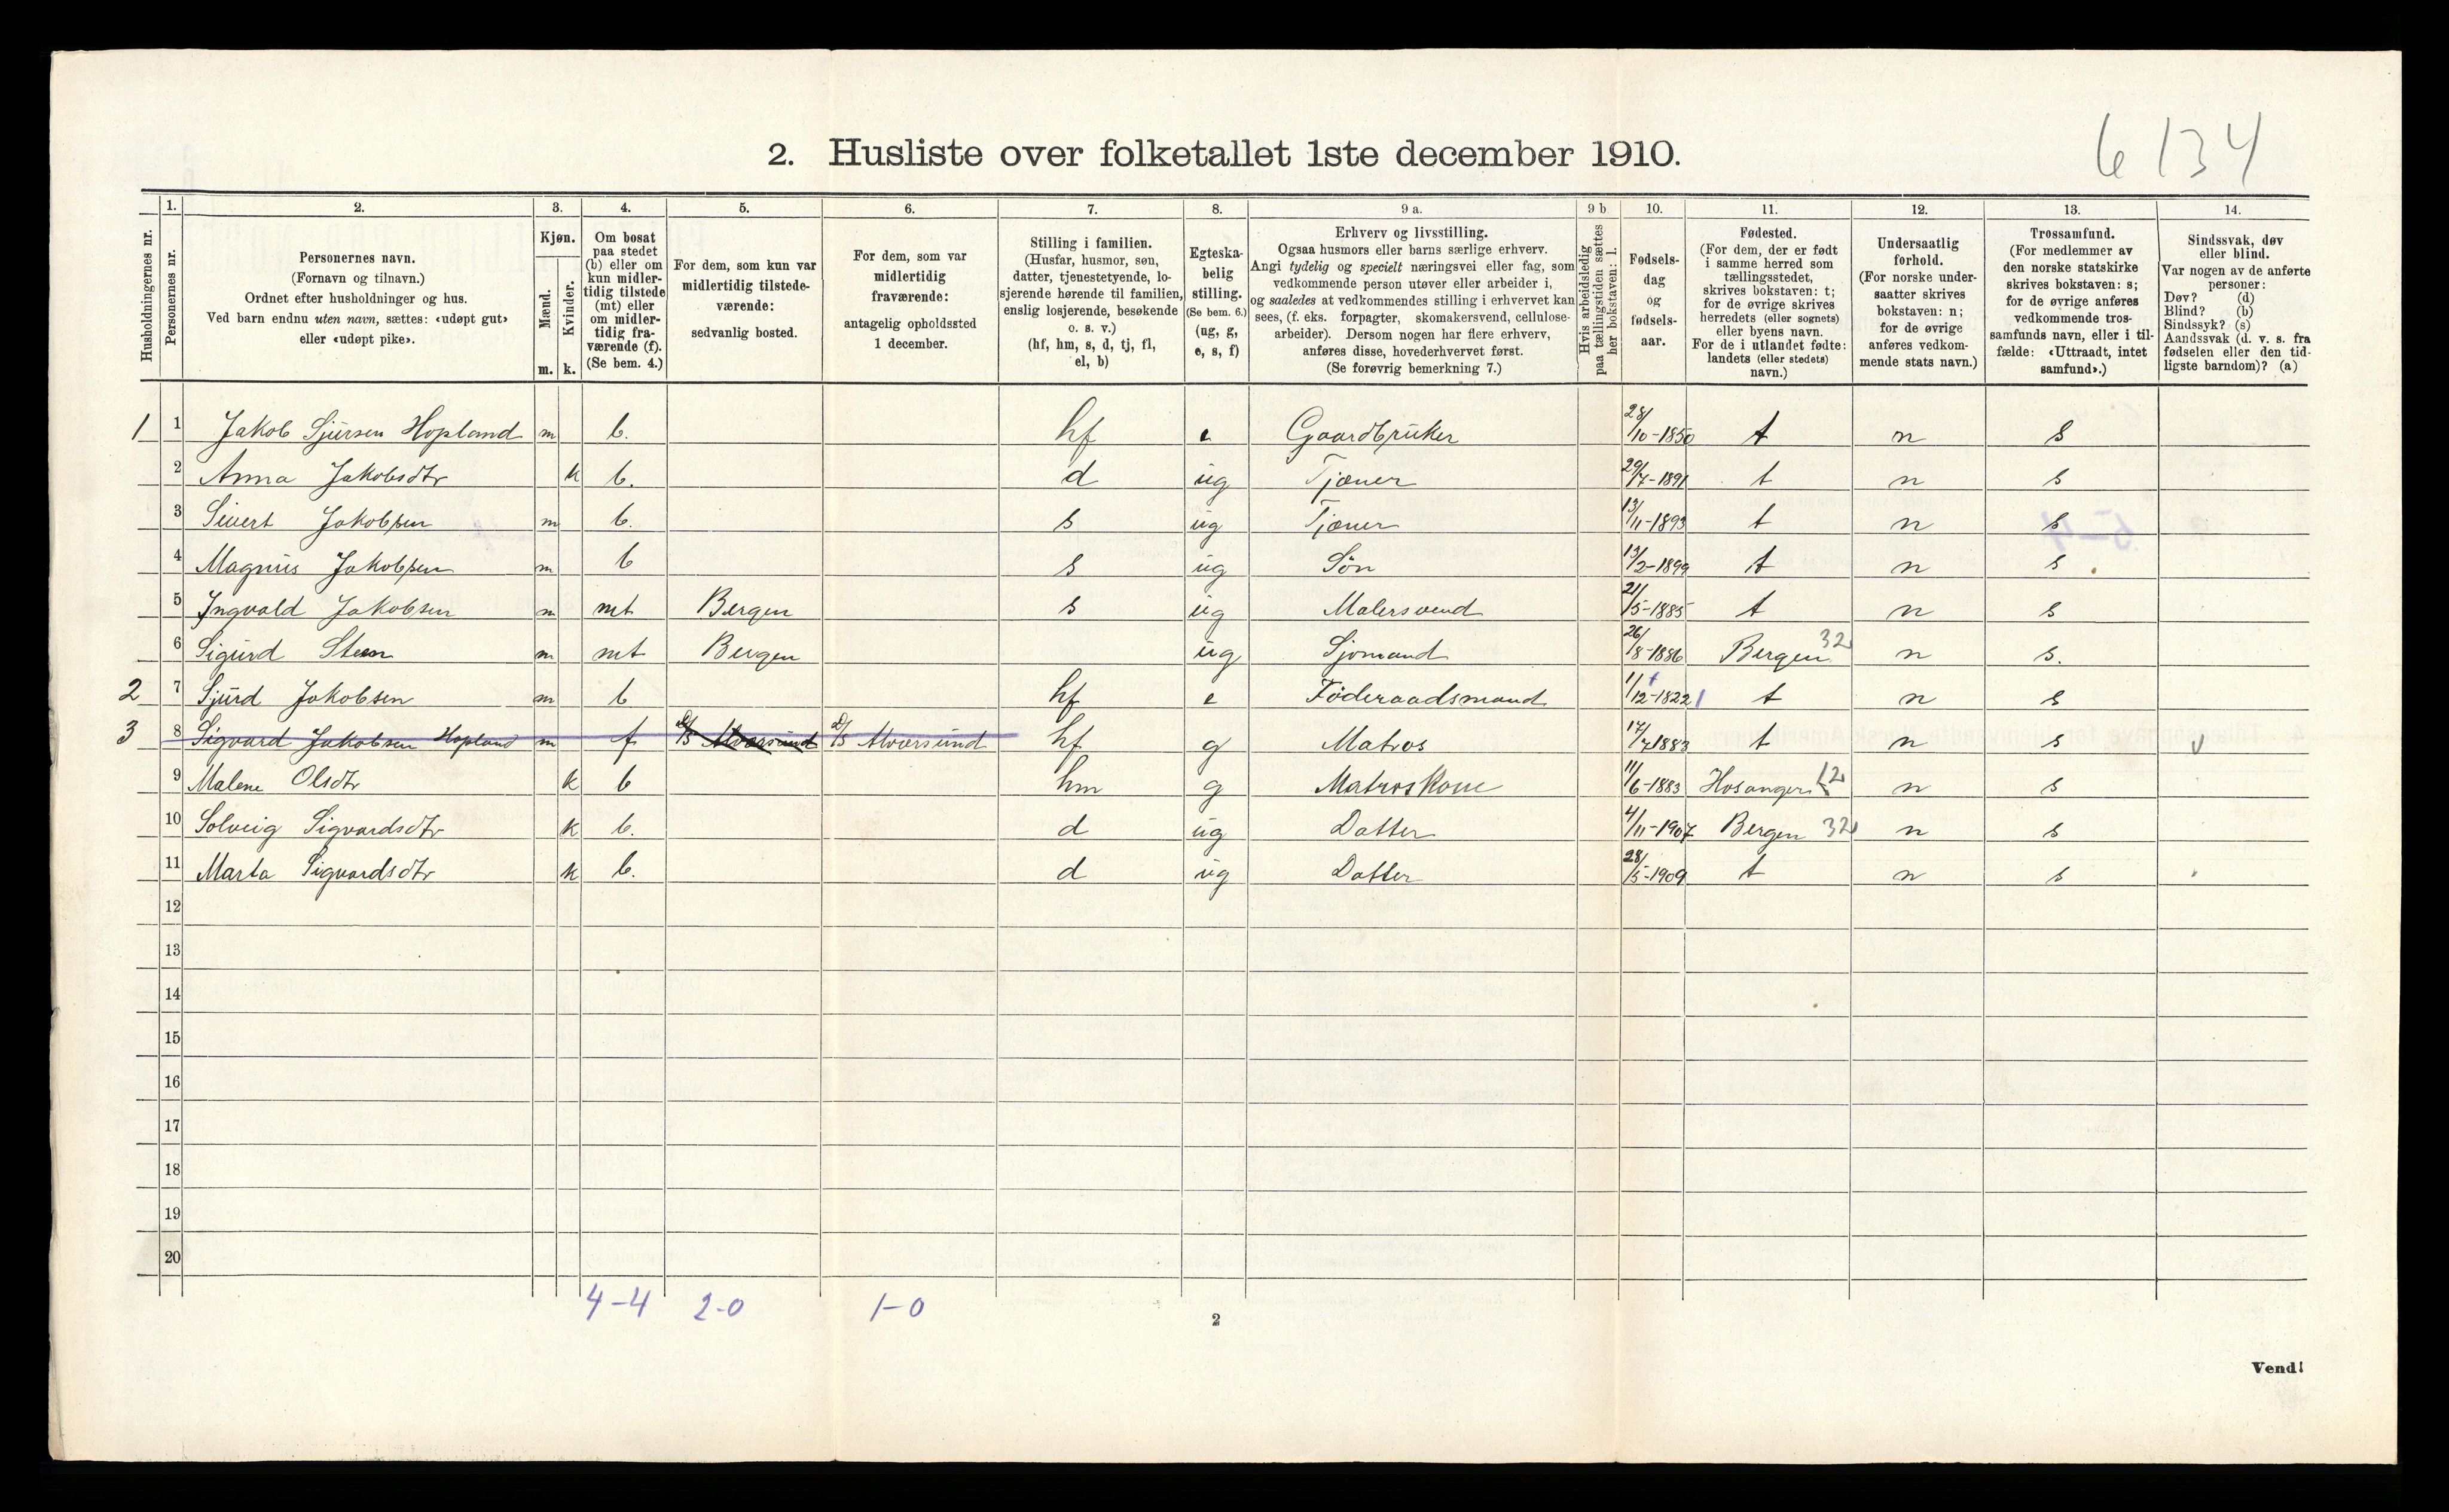 6134
2. Husliste over folketallet 1ste december 1910.
Husholdningernes nr.
1.
Personernes nr.
2.
Personernes navn.
(Fornavn og tilnavn.)
Ordnet efter husholdninger og hus.
Ved barn endnu uten navn, sættes: «udøpt gut»
eller «udøpt pike».
3.
Kjøn.
Mænd.
Kvinder.
m. k.
4.
Om bosat
paa stedet
(b) eller om
kun midler-
tidig tilstede
(mt) eller
om midler-
tidig fra-
værende (f).
(Se bem. 4.)
5.
For dem, som kun var
midlertidig tilstede-
værende:
sedvanlig bosted.
6.
For dem, som var
midlertidig
fraværende:
antagelig opholdssted
1 december.
7.
Stilling i familien.
(Husfar, husmor, søn,
datter, tjenestetyende, lo-
sjerende hørende til familien,
enslig losjerende, besøkende
o. s. v.)
(hf, hm, s, d, tj, fl,
el, b)
8.
Egteska-
belig
stilling.
(Se bem. 6.)
(ug, g,
e, s, f)
9 a.
Erhverv og livsstilling.
Ogsaa husmors eller barns særlige erhverv.
Angi tydelig og specielt næringsvei eller fag, som
vedkommende person utøver eller arbeider i,
og saaledes at vedkommendes stilling i erhvervet kan
sees, (f. eks. forpagter, skomakersvend, cellulose-
arbeider). Dersom nogen har flere erhverv,
anføres disse, hovederhvervet først.
(Se forøvrig bemerkning 7.)
9 b
Hvis arbeidsledig
paa tællingstiden sættes
her bokstaven: l.
10.
Fødsels-
dag
og
fødsels-
aar.
11.
Fødested.
(For dem, der er født
i samme herred som
tællingsstedet,
skrives bokstaven: t;
for de øvrige skrives
herredets (eller sognets)
eller byens navn.
For de i utlandet fødte:
landets (eller stedets)
navn.)
12.
Undersaatlig
forhold.
(For norske under-
saatter skrives
bokstaven: n;
for de øvrige
anføres vedkom-
mende stats navn.)
13.
Trossamfund.
(For medlemmer av
den norske statskirke
skrives bokstaven: s;
for de øvrige anføres
vedkommende tros-
samfunds navn, eller i til-
fælde: «Uttraadt, intet
samfund».)
14.
Sindssvak, døv
eller blind.
Var nogen av de anførte
personer:
Døv? (d)
Blind? (b)
Sindssyk? (s)
Aandssvak (d. v. s. fra
fødselen eller den tid-
ligste barndom)? (a)
1 1 Jakob Sjursen Hopland m b. hf e Gaardbruker 28/10-1850 t n s
2 Anna Jakobsdtr k b. d ug Tjener 29/7-1891 t n s
3 Sivert Jakobsen m b. s ug Tjener 13/11-1893 t n s
4 Magnus Jakobsen m b s ug Søn 13/2-1899 t n s
5 Ingvald Jakobsen m mt Bergen s ug Malersvend 21/5-1885 t n s
6 Sigurd Steen m mt Bergen ug Sjømand 26/8-1886 Bergen 32 n s.
2 7 Sjurd Jakobsen m b hf e Føderaadsmand 1/12-1822 t n s
3 8 Sigvard Jakobsen Hopland m f D/S Alversund D/S Alversund hf g Matros 17/7 1883 t n s v
9 Malene Olsdtr k b hm g Matroskone 11/6-1883 Hosanger 12 n s
10 Solveig Sigvardsdtr k b. d ug Datter 4/11-1907 Bergen 32 n s
11 Marta Sigvardsdtr k b. d ug Datter 28/5-1909 t n s
12
13
14
15
16
17
18
19
20
4-4 2-0 1-0
2
Vend!